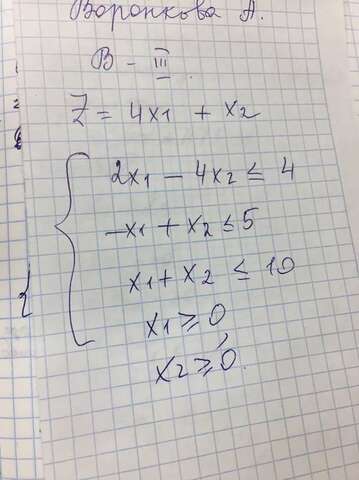 Воронкова А.
В - III
Z = 4x1 + x2
2x1 - 4x2 ≤ 4
-x1 + x2 ≤ 5
x1 + x2 ≤ 10
x1 ≥ 0,
x2 ≥ 0.